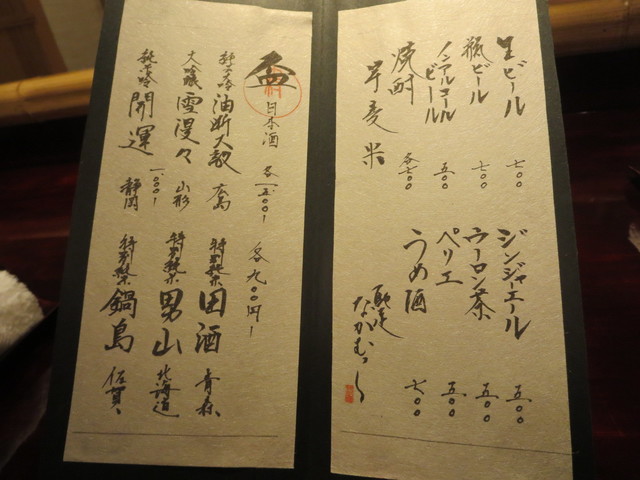 生ビール 七〇〇
瓶ビール 七〇〇
ノンアルコールビール 五〇〇
焼酎 各七〇〇
芋 麦 米
ジンジャーエール 五〇〇
ウーロン茶 五〇〇
ペリエ 五〇〇
うめ酒 七〇〇
なかむら
日本酒
油断大敵 広島
大吟 雪漫々 山形
開運 静岡
各九〇円
特別純米 田酒 青森
特別純米 男山 北海道
特別純米 鍋島 佐賀